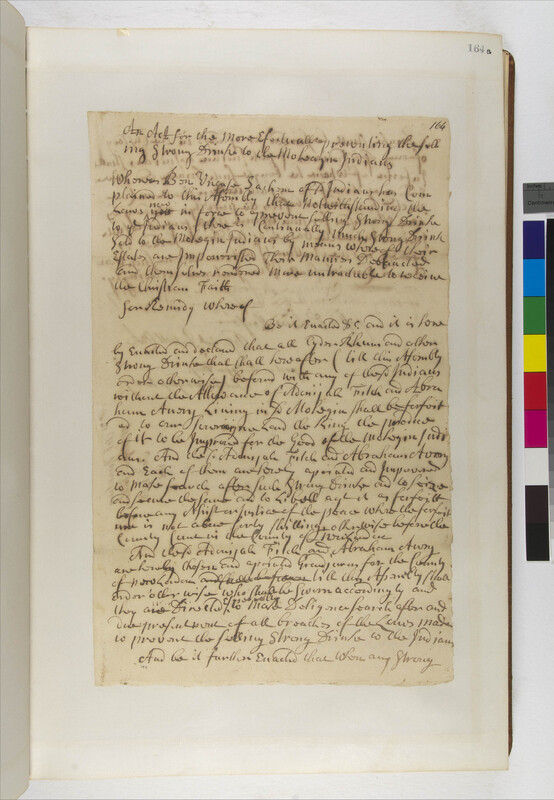 164a
164
An Act for the More Efectuall preventing the sell
ing Strong Drinke to the Mohegin Indians
Whereas Ben Uncass Sachem of Indians has Com
plained to this Assembly that Notwithstanding the
Laws now in force to prevent selling Strong Drink
to ye Indians there is Continually Much Strong Drink
Sold to the Mohegin Indians by means where of their
Estates are Impoverished Their Manners Debauched
and themselves rendered More untractable to receive
the Christian Faith
For Remidy Whereof
Be it Enacted &C and it is here
by Enacted and declared that all Cyder Rhum and other
Strong Drinke that shall hereafter (till this Assembly
order otherwise) be found with any of these Indians
without the Allowance of Adonijah Fitch and Abra
ham Avery Living in Mohegin shall be forfeit
ed to our Soveraigne Lord the King the produce
of it to be Improved for the Good of the Mohegin Indi
ans. And the sd Adonijah Fitch and Abraham Avery
and Each of them are hereby apointed and Impowered
to Make search after such Strong Drinke and to seize
and secure the same and to Libell agst it as forfeitt
before any Assistant or Justice of the peace where the forfeit
is not above forty shillings otherwise before the
County Court in the County of
And the sd Adonijah Fitch and Abraham Avery
are hereby chosen and apointed Grandjurors for the County
of New London till this Assembly shall
order other wise who shall be Sworn accordingly and
they are Directed to Make Deligence search after and
due presentment of all breaches of the Laws made
to prevent the selling Strong Drinke to the Indians
And be it further Enacted that When any Strong